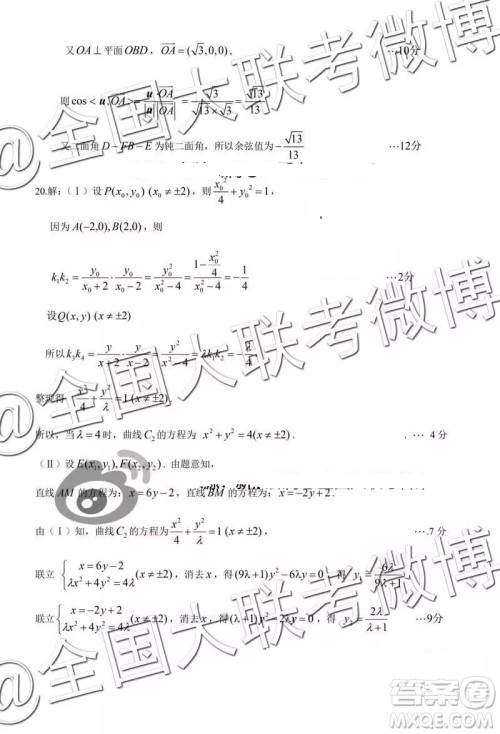 又OA⊥平面OBD，OA=(√3,0,0)， …10分
则cos<u,OA>=u·OA/|u||OA|=√3/√13×√3=√13/13
又二面角D−FB−E为钝二面角，所以余弦值为−√13/13 …12分
20.解：(Ⅰ)设P(x₀,y₀) (x₀≠±2)，则x₀²/4+y₀²=1，
因为A(-2,0),B(2,0)，则
k₁k₂=y₀/x₀+2·y₀/x₀−2=y₀²/x₀²−4=1−x₀²/4/x₀²−4=−1/4 …2分
设Q(x,y) (x≠±2)
所以k₃k₄=y/x+2·y/x−2=y²/x²−4=λk₁k₂=−λ/4
整理得 x²/4+y²/λ=1(x≠±2).
所以，当λ=4时，曲线C₂的方程为 x²+y²=4(x≠±2). 4分
(Ⅱ)设E(x₁,y₁),F(x₂,y₂). 由题意知，
直线AM的方程为：x=6y−2， 直线BM的方程为：x=−2y+2.
由(Ⅰ)知，曲线C₂的方程为x²/4+y²/λ=1(x≠±2) …7分
联立{x=6y−2 λx²+4y²=4λ (x≠±2)，消去x，得(9λ+1)y²−6λy=0，得 y₁=6λ/9λ+1
联立{x=−2y+2 λx²+4y²=4λ (x≠±2)，消去x，得(λ+1)y²−2λy=0，得 y₂=2λ/λ+1 …9分
@全国大联考微博
@全国大联考微博
@全国大联考微博
答案圈
MXQE.COM